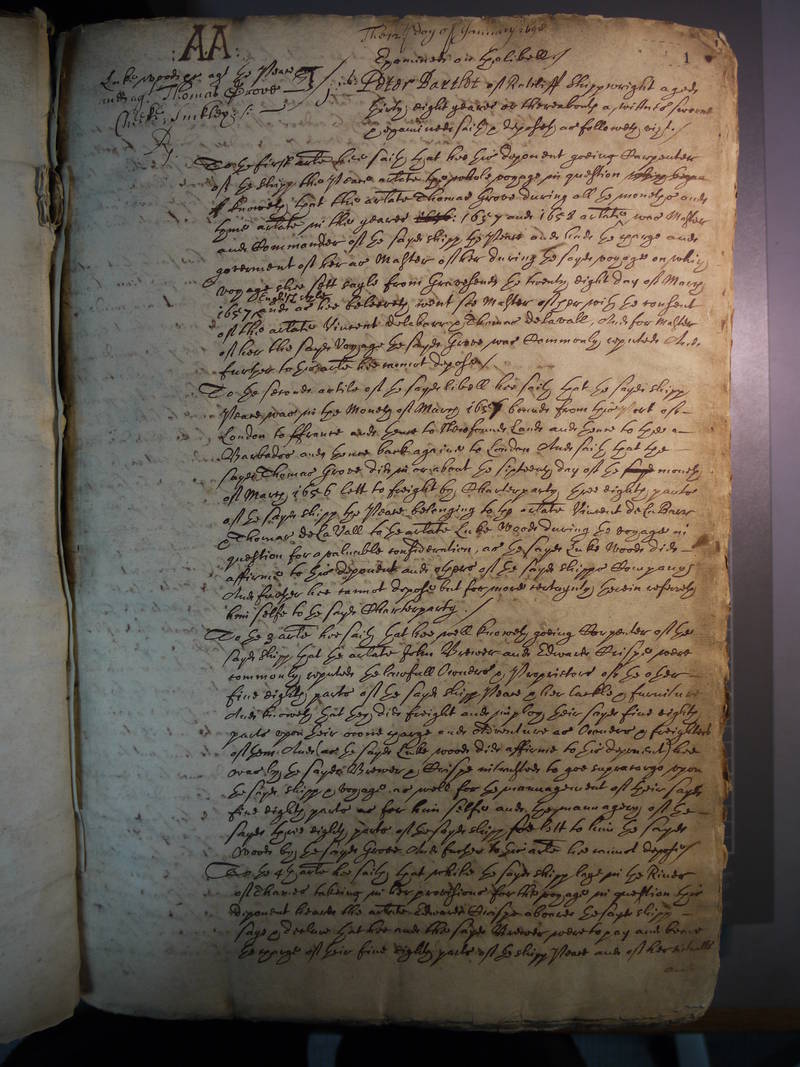 :AA:
The 12th day of January 1658
Examined on the libell/
1
Luke Woods et
agt Thomas Grove
Peter Bartlet of Ratcliff Shippwright aged
thirty eight yeares or thereabouts a witnes sworne
& examined saith & deposeth as followeth viz:/
To the first arlte hee saith that hee this deponent goeing Carpenter
of the shipp the Peace arlate the whole voyage in question
knoweth that the arlate Thomas Grove during all the moneths and
tyme arlate in the yeares 1657 and 1658 arlate was Master
and Commander of the sayd shipp the Peace and had the charge and
government of her as Master of her during the sayd voyage on which
voyage shee sett sayle from Gravesend the twenty eight day of March
1657 English style and as hee beleeveth went soe Master of her with the consent
of the arlate Vincent delabarr & Thomas delavall, And for Master
of her the sayd voyage the sayd Grove was Commonly reputed And
further to this arlte hee cannot depose/
To the second article of the sayd libell hee saith that the sayd shipp
Peace was in the Moneth of March 1657 bound from this Port of
London to ffrance and thence to Newfound Land and thence to the
Barbados and thence back againe to London And saith that the
sayd Thomas Grove did in or about the sixteenth day of the moneth
of March 1656 lett to freight by Charterparty three eighth parts
of the sayd shipp the Peace belonging to the arlate Vincent de la Barr
& Thomas de la Vall to the arlate Luke Woods during the voyage in
question for a valuable consideration, as the sayd Luke Woods did
affirme to this deponent and others of the sayd shipps Company
And further hee cannot depose but for more certaynty herein referreth
him selfe to the sayd Charterparty./
To the 3 arlte hee saith that hee well knoweth goeing Carpenter of the
sayd shipp that the arlate John Brewer and Edward Crispe were
commonly reputed the lawfull Owners & Proprietors of the other
five eighth parts of the sayd shipp Peace & her tackle & furniture
And knoweth that they did freight and imploy their sayd five eighth
parts upon their owne charge and Adventure as Owners & freighters
of them And (as the sayd Luke Woods did affirme to this deponent) hee
was by the sayd Brewer & Crispe intrusted to goe supracargo upon
the sayd shipp & voyage as well for the mannagement of their sayd
five eighth parts as for him selfe and the mannagery of the
sayd three eighth parts of the sayd shipp soe lett to him the sayd
Woods by the sayd Grove And further to this arlte hee cannot depose/
To the 4th arlte hee saith that while the sayd shipp lay in the River
of Thames taking in her provisions for the voyage in question this
deponent heard the arlate Edward Crispe aboard the sayd shipp
saye & declare that hee and the sayd Brewer were to pay and beare
the charge of their five eighth parts of the shipp Peace and of her victualls
and